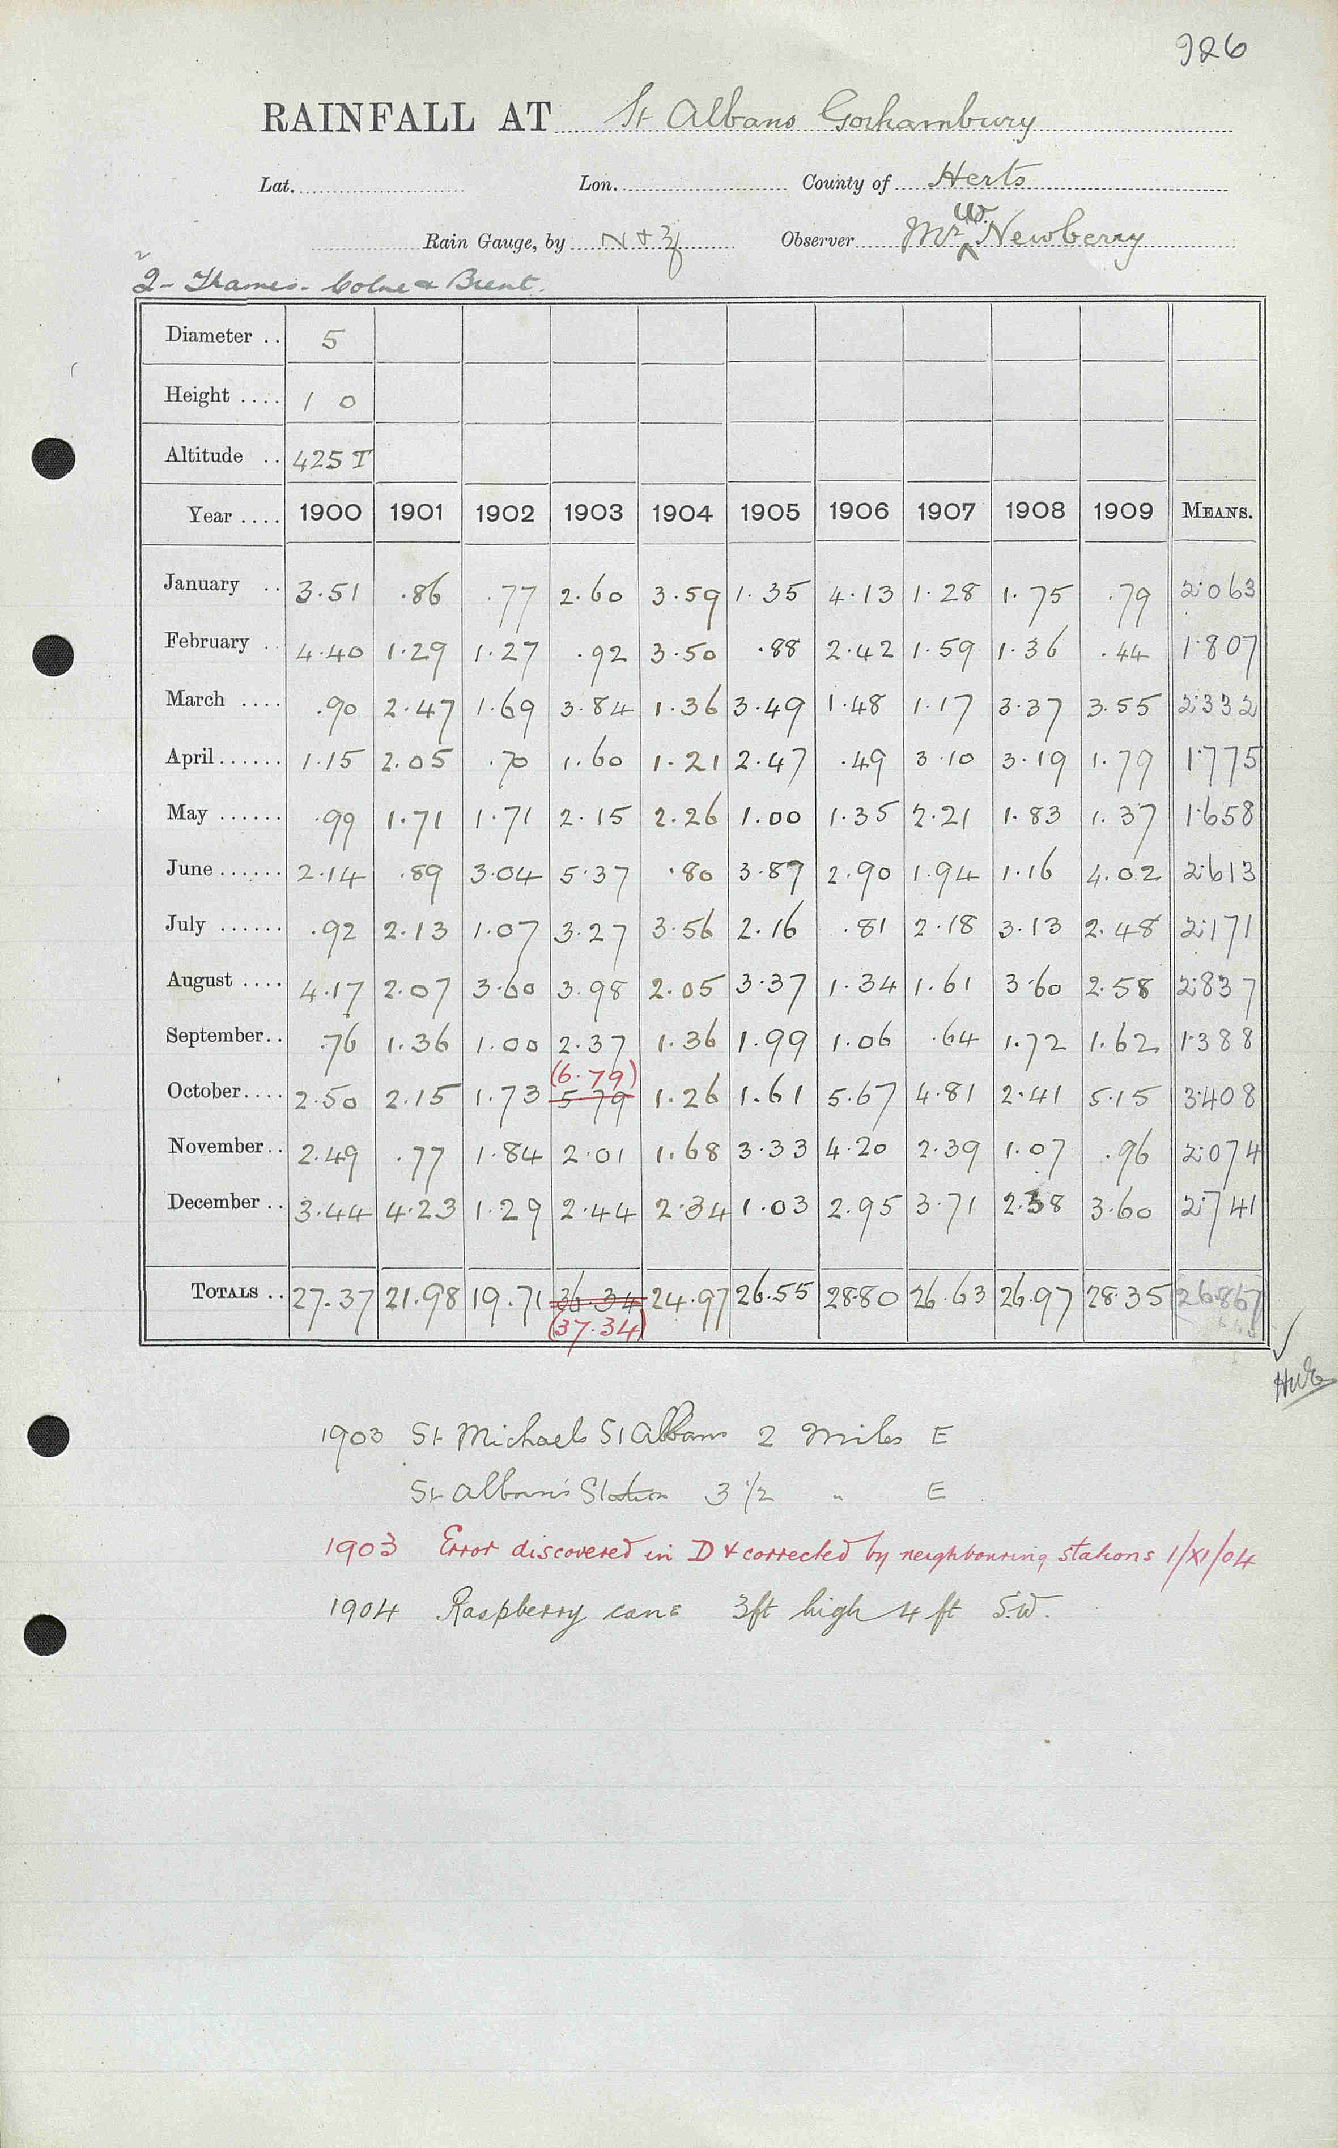 926
RAINFALL AT St Albans Gorhambury
Lat. Lon. County of Herts
Rain Gauge, by N & Z Observer Mr W. Newberry
2 - Thames - Colne & Brent.
Diameter .. 5
Height .... 1 0
Altitude .. 425 T
Year .... 1900 1901 1902 1903 1904 1905 1906 1907 1908 1909 MEANS.
January .. 3.51 .86 .77 2.60 3.59 1.35 4.13 1.28 1.75 .79 2.063
February .. 4.40 1.29 1.27 .92 3.50 .88 2.42 1.59 1.36 .44 1.807
March .... .90 2.47 1.69 3.84 1.36 3.49 1.48 1.17 3.37 3.55 2.332
April...... 1.15 2.05 .70 1.60 1.21 2.47 .49 3.10 3.19 1.79 1.775
May ...... .99 1.71 1.71 2.15 2.26 1.00 1.35 2.21 1.83 1.37 1.658
June...... 2.14 .89 3.04 5.37 .80 3.87 2.90 1.94 1.16 4.02 2.613
July ...... .92 2.13 1.07 3.27 3.56 2.16 .81 2.18 3.13 2.48 2.171
August .... 4.17 2.07 3.60 3.98 2.05 3.37 1.34 1.61 3.60 2.58 2.837
September.. .76 1.36 1.00 2.37 1.36 1.99 1.06 .64 1.72 1.62 1.388
(6.79)
October.... 2.50 2.15 1.73 5.79 1.26 1.61 5.67 4.81 2.41 5.15 3.408
November.. 2.49 .77 1.84 2.01 1.68 3.33 4.20 2.39 1.07 .96 2.074
December .. 3.44 4.23 1.29 2.44 2.34 1.03 2.95 3.71 2.38 3.60 2.741
TOTALS .. 27.37 21.98 19.71 36.34 24.97 26.55 28.80 26.63 26.97 28.35 26.867
(37.34)
1903 St Michaels St Albans 2 miles E
St Albans Station 3 1/2 " E
1903 Error discovered in D & corrected by neighbouring stations 1/XI/04
1904 Raspberry cane 3ft high 4 ft S.W.